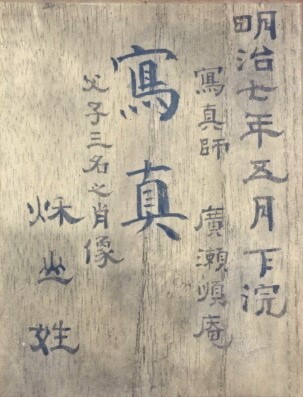 明治七年五月下浣
寫真師 廣瀨
寫真
父子三名之肖像
秌山姓